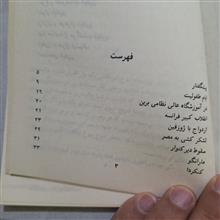 فهرست
پیشگفتار ۵
ایام طفولیت ۹
در آموزشگاه عالی نظامی برین ۱۶
انقلاب کبیر فرانسه ۲۰
ازدواج با ژوزفین ۲۱
لشکر کشی به مصر ۲۶
سقوط دیرکتوار ۳۱
مارانگو ۳۳
کنکردا
۳